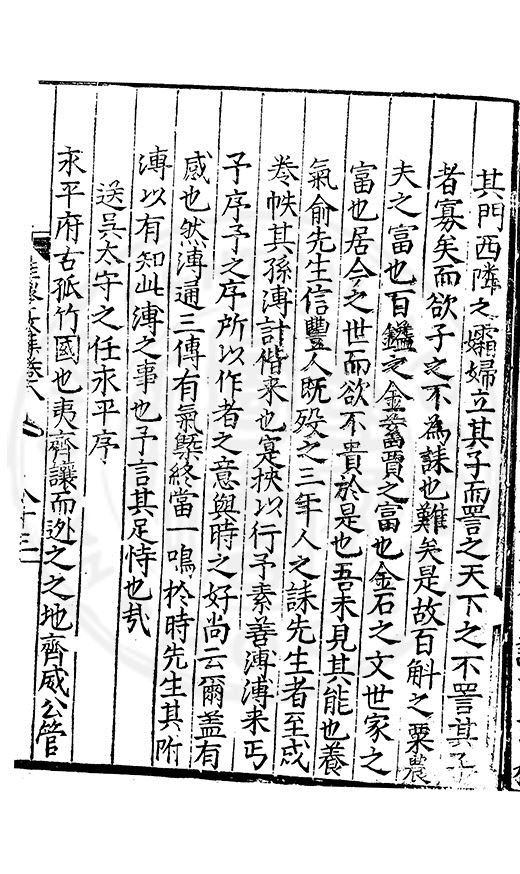 其門西隣之孀婦立其子而詈之天下之不詈其子
者寡矣而欲子之不為誄也難矣是故百斛之粟農
夫之富也百鎰之金蓄賈之富也金石之文世家之
富也居今之世而欲不貴於是也吾未見其能也養
氣俞先生信豐人既歿之三年人之誄先生者至成
卷帙其孫溥計偕来也寔挾以行予素善溥溥来丐
予序予之序所以作者之意與時之好尚云爾盖有
感也然溥通三傳有氣槩終當一鳴於時先生其附
溥以有知此溥之事也予言其足恃也㢤
送吳太守之任永平序
永平府古孤竹國也夷齊讓而逃之之地齊威公管